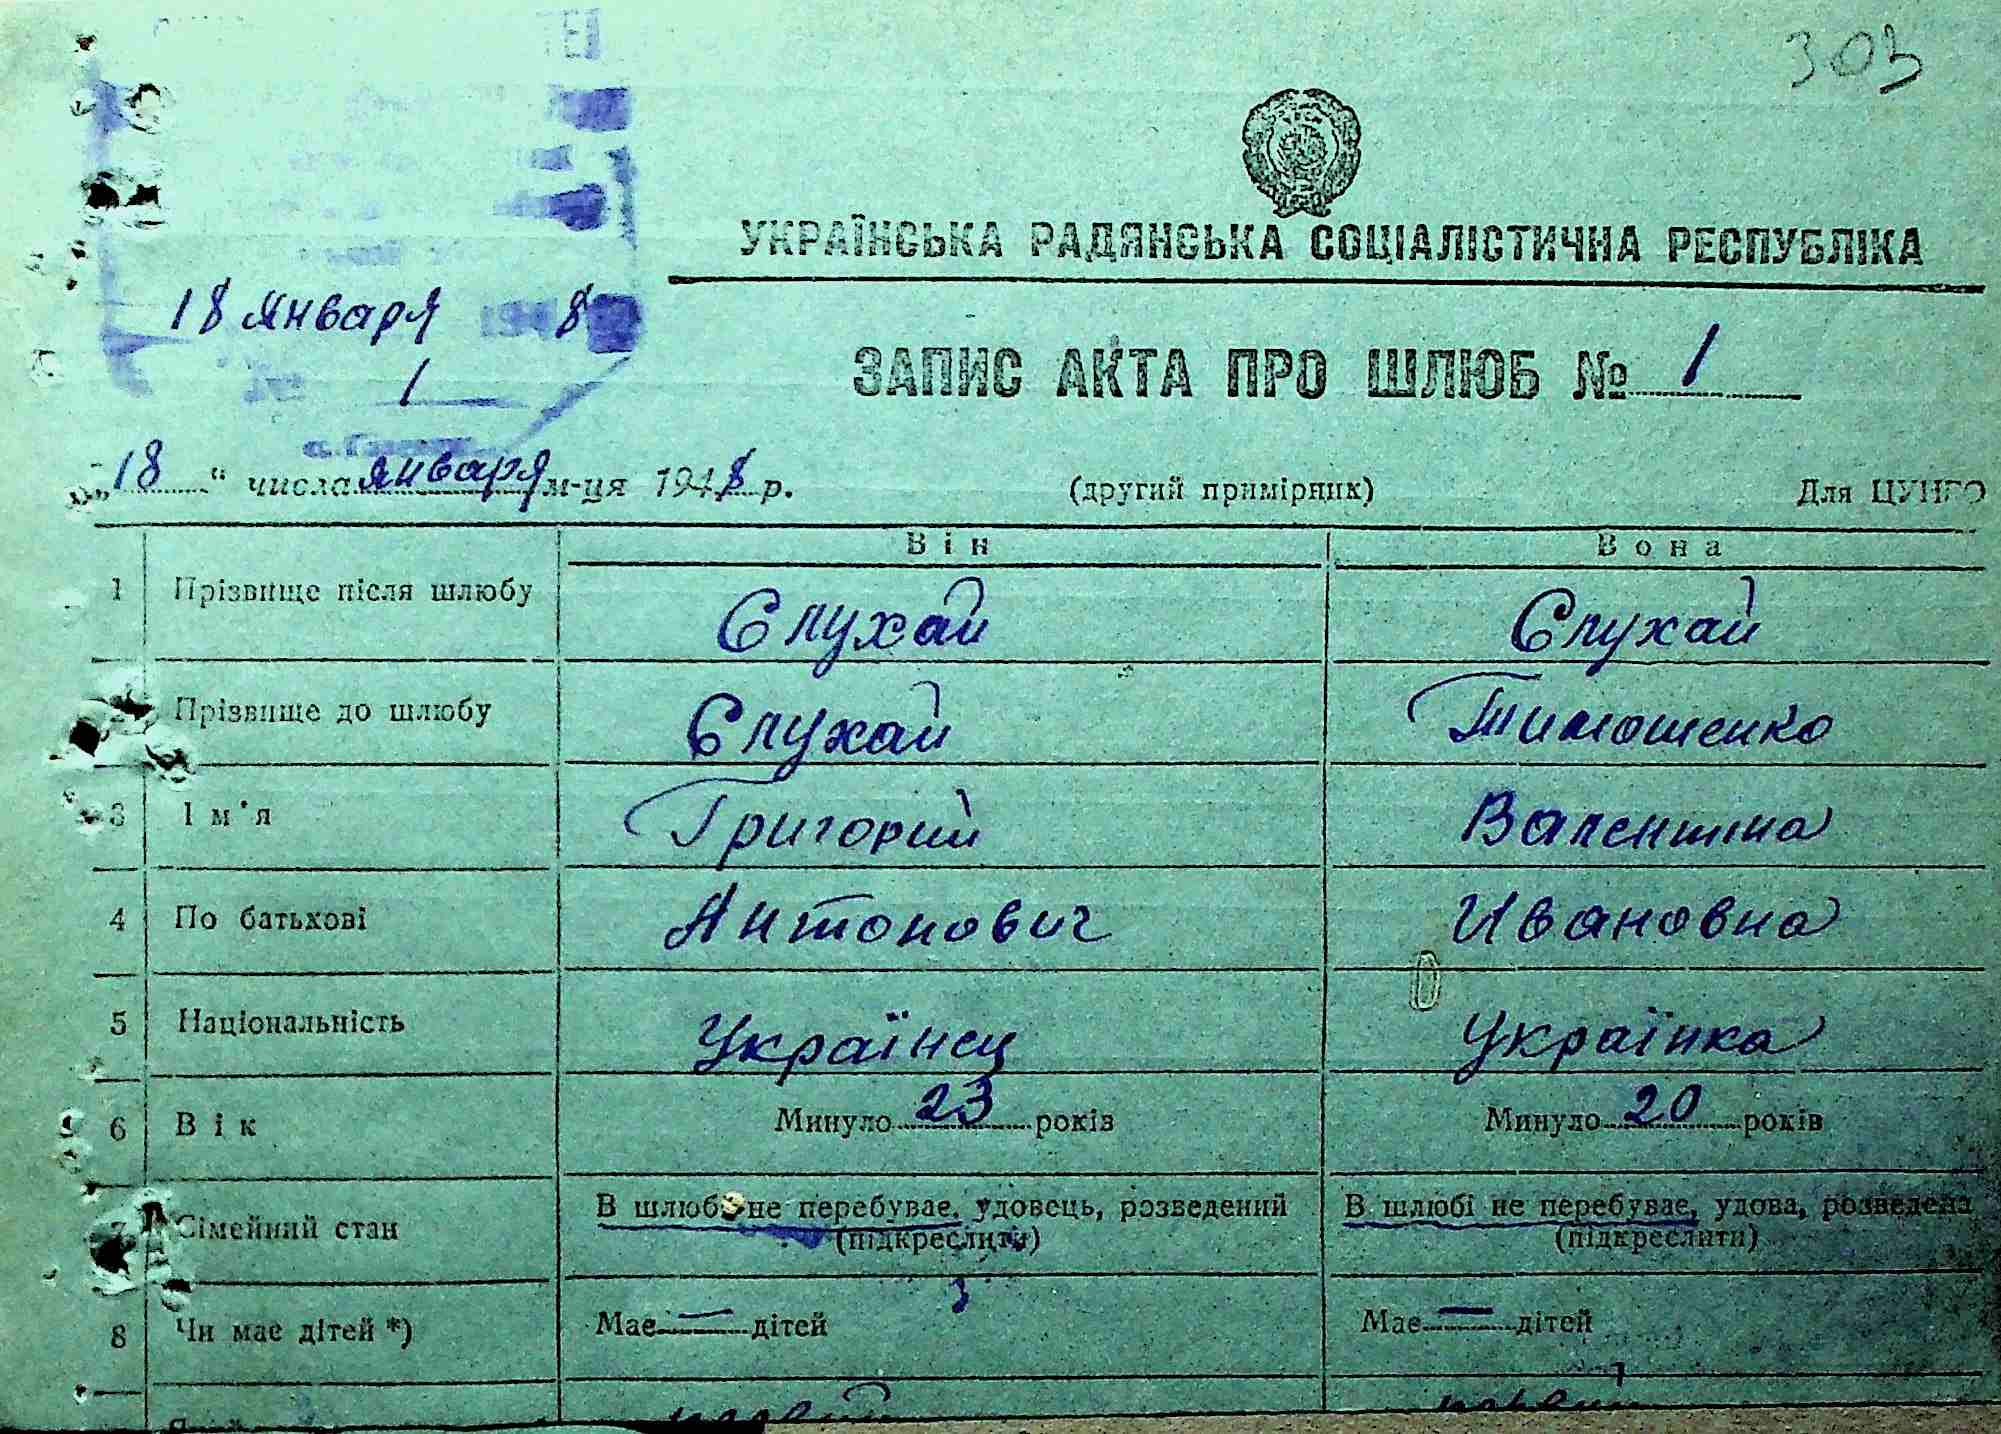 303
УКРАЇНСЬКА РАДЯНСЬКА СОЦІАЛІСТИЧНА РЕСПУБЛІКА
18 января 194 8
1
ЗАПИС АКТА ПРО ШЛЮБ № 1
„18“ числа января м-ця 1948 р. (другий примірник) Для ЦУНГО
Він Вона
1 Прізвище після шлюбу Слухай Слухай
Прізвище до шлюбу Слухай Тимошенко
3 Ім'я Григорий Валентина
4 По батькові Антонович Ивановна
5 Національність Українец Українка
6 Вік Минуло 23 років Минуло 20 років
7 Сімейний стан В шлюбі не перебуває, удовець, розведений В шлюбі не перебуває, удова, розведена
(підкреслити) (підкреслити)
8 Чи має дітей *) Має — дітей Має — дітей